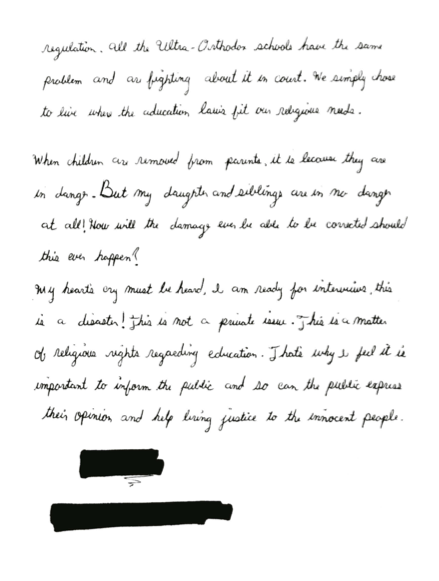 regulation. All the Ultra-Orthodox schools have the same
problem and are fighting about it in court. We simply chose
to live where the education laws fit our religious needs.
When children are removed from parents, it is because they are
in danger. But my daughter and siblings are in no danger
at all! How will the damage ever be able to be corrected should
this ever happen?
My heart's cry must be heard, I am ready for interviews, this
is a disaster! This is not a private issue. This is a matter
of religious rights regarding education. Thats why I feel it is
important to inform the public and so can the public express
their opinion and help bring justice to the innocent people.